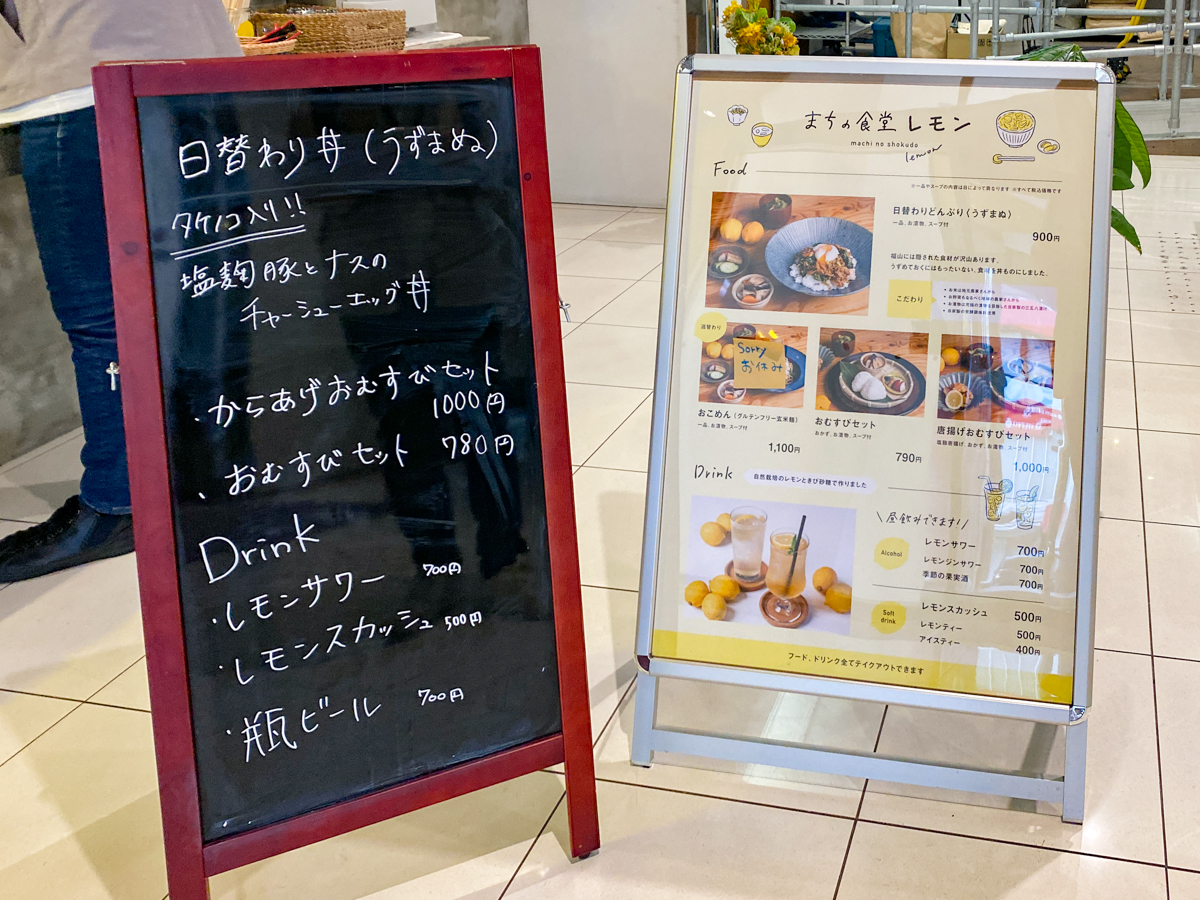 日替わり丼(うずまぬ)
タケノコ入り!!
塩麹豚とナスの
チャーシューエッグ丼
・からあげおむすびセット
1000円
・おむすびセット 780円
Drink
・レモンサワー 700円
・レモンスカッシュ 500円
・瓶ビール 700円
まちの食堂 レモン
machi no shokudo
lemon
Food
※一品やスープの内容は日によって異なります ※すべて税込価格です
日替わりどんぶり(うずまぬ)
一品、お漬物、スープ付
900円
福山には隠された食材が沢山あります。
うずめておくにはもったいない、食材を丼ものにしました。
こだわり
週替わり
Sorry
お休み
おこめん(グルテンフリー玄米麺)
一品、お漬物、スープ付
1,100円
おむすびセット
おかず、お漬物、スープ付
790円
唐揚げおむすびセット
塩麹唐揚げ、おかず、お漬物、スープ付
1,000円
Drink
自然栽培のレモンときび砂糖で作りました
\昼飲みできます!/
Alcohol
レモンサワー 700円
レモンジンサワー 700円
季節の果実酒 700円
Soft
drink
レモンスカッシュ 500円
レモンティー 500円
アイスティー 400円
フード、ドリンク全てテイクアウトできます